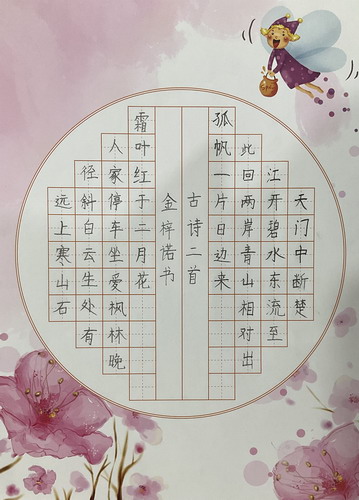 天门中断楚
江开碧水东流至
此回两岸青山相对出
孤帆一片日边来
古诗二首
金梓诺书
霜叶红于二月花
人家停车坐爱枫林晚
径斜白云生处有
远上寒山石